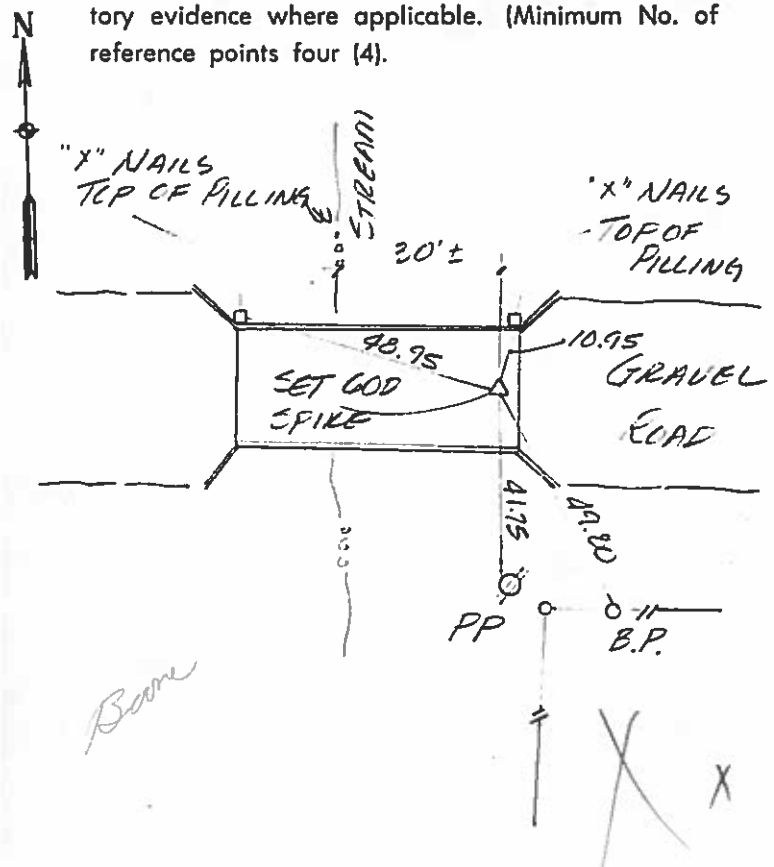 N
tory evidence where applicable. (Minimum No. of
reference points four (4).
"X" NAILS
TOP OF PILLING
STREAM
20'±
"X" NAILS
TOP OF
PILLING
48.95
10.95
SET 60D
SPIKE
GRAVEL
ROAD
41.75
49.80
PP
B.P.
Boone
X
X